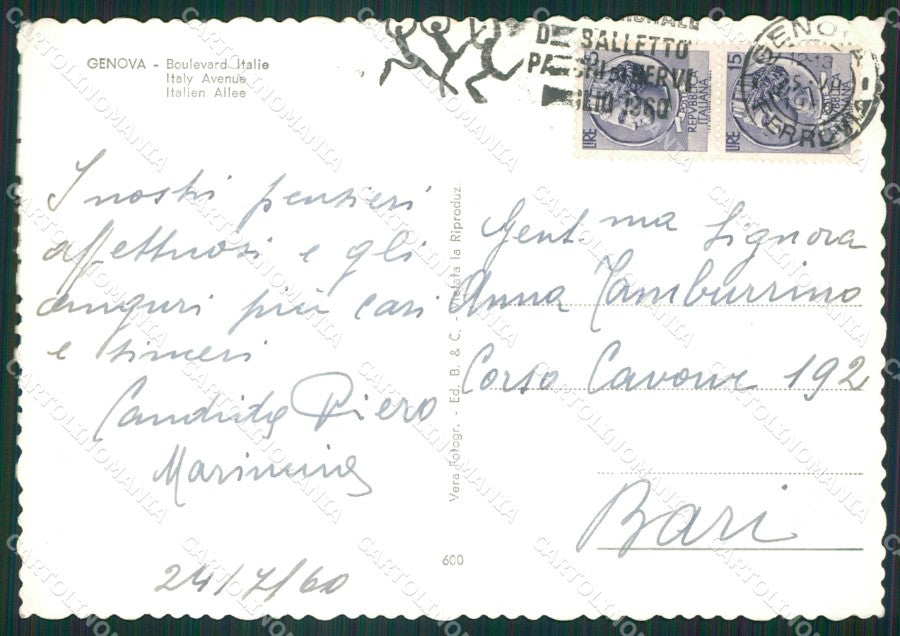 GENOVA - Boulevard Italie
Italy Avenue
Italien Allee
DEL BALLETTO
PARCHI DI NERVI
LUGLIO 1960
GENOVA
FERROVIA
LIRE 15
REPVBBLICA
ITALIANA
LIRE 15
I nostri pensieri
affettuosi e gli
auguri più cari
e sinceri
Candida Piero
Marinuma
24/7/60
Vera Fotogr. - Ed. B. & C. Vietata la Riproduz.
600
Gent.ma Signora
Anna Tamburrino
Corso Cavour 192
Bari
CARTOLINOMANIA